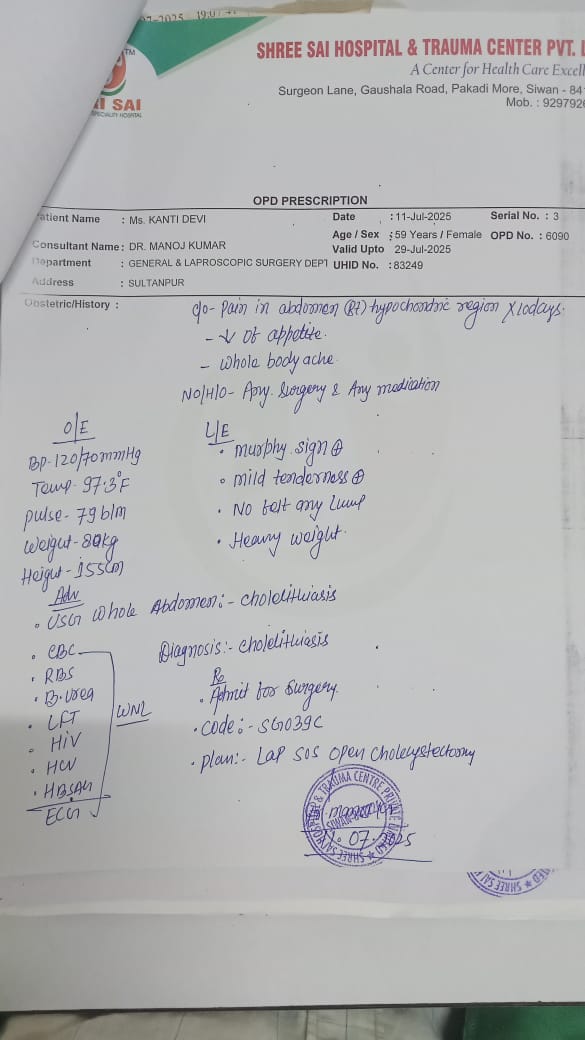 07-2025 19:07:41
TM
I SAI
SPECIALITY HOSPITAL
SHREE SAI HOSPITAL & TRAUMA CENTER PVT. L
A Center for Health Care Excell
Surgeon Lane, Gaushala Road, Pakadi More, Siwan - 84
Mob. : 929792
OPD PRESCRIPTION
Patient Name : Ms. KANTI DEVI Date : 11-Jul-2025 Serial No. : 3
Age / Sex : 59 Years / Female OPD No. : 6090
Consultant Name : DR. MANOJ KUMAR Valid Upto 29-Jul-2025
Department : GENERAL & LAPROSCOPIC SURGERY DEPT UHID No. : 83249
Address : SULTANPUR
Obstetric/History :
c/o- Pain in abdomen (Rt) hypochondric region X10days.
- ↓ of appetite.
- whole body ache
NO/H/O- Any. Surgery & Any medication
O/E
BP-120/70mmHg
Temp-97.3°F
pulse-79 b/m
weight-80kg
Height-155cm
L/E
• murphy sign ⊕
• mild tenderness ⊕
• No felt any lump
• Heavy weight.
Adv
• USG whole Abdomen:- cholelithiasis
• CBC
• RBS
• B.urea
• LFT
• HiV
• HCV
• HBSAG
ECG
WNL
Diagnosis:- cholelithiasis
Rx
• Admit for Surgery.
• code:- SG039C
• plan:- Lap SOS open cholecystectomy
SHREE SAI HOSPITAL & TRAUMA CENTRE PRIVATE LIMITED
SIWAN
11.07.2025
SHREE SAI